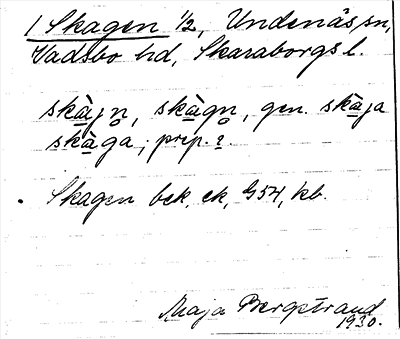 1 Skagen 1/2, Undenäs sn,
Vadsbo hd, Skaraborgs l.
skàjn, skàgn, gen. skàja
skàga; prep. i.
Skagen bek, ek, G54, kb.
Maja Bergstrand
1930.